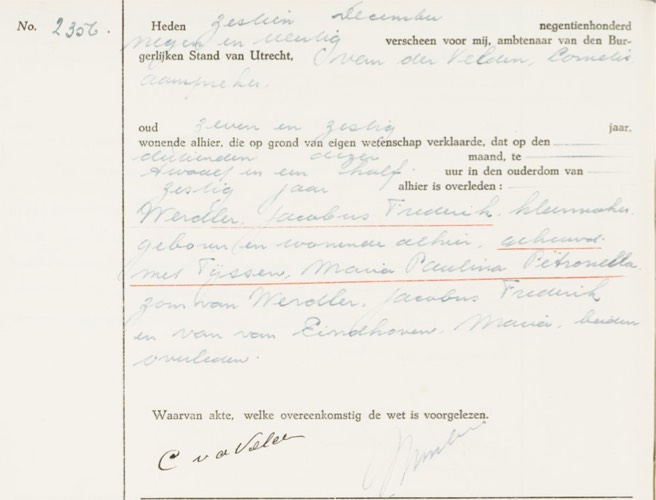 No. 2356.
Heden zestien December negentienhonderd
negen en veertig verscheen voor mij, ambtenaar van den Bur-
gerlijken Stand van Utrecht, van der Velden, Cornelis
aanspreker.
oud zeven en zestig jaar,
wonende alhier, die op grond van eigen wetenschap verklaarde, dat op den
dertienden dezer maand, te
twaalf en een half uur in den ouderdom van
zestig jaar alhier is overleden:
Werdler, Jacobus Frederik, kleermaker
geboren en wonende alhier, gehuwd
met Tijssen, Maria Paulina Petronella
zoon van Werdler, Jacobus Frederik
en van van Eindhoven, Maria, beiden
overleden.
Waarvan akte, welke overeenkomstig de wet is voorgelezen.
C v d Velden